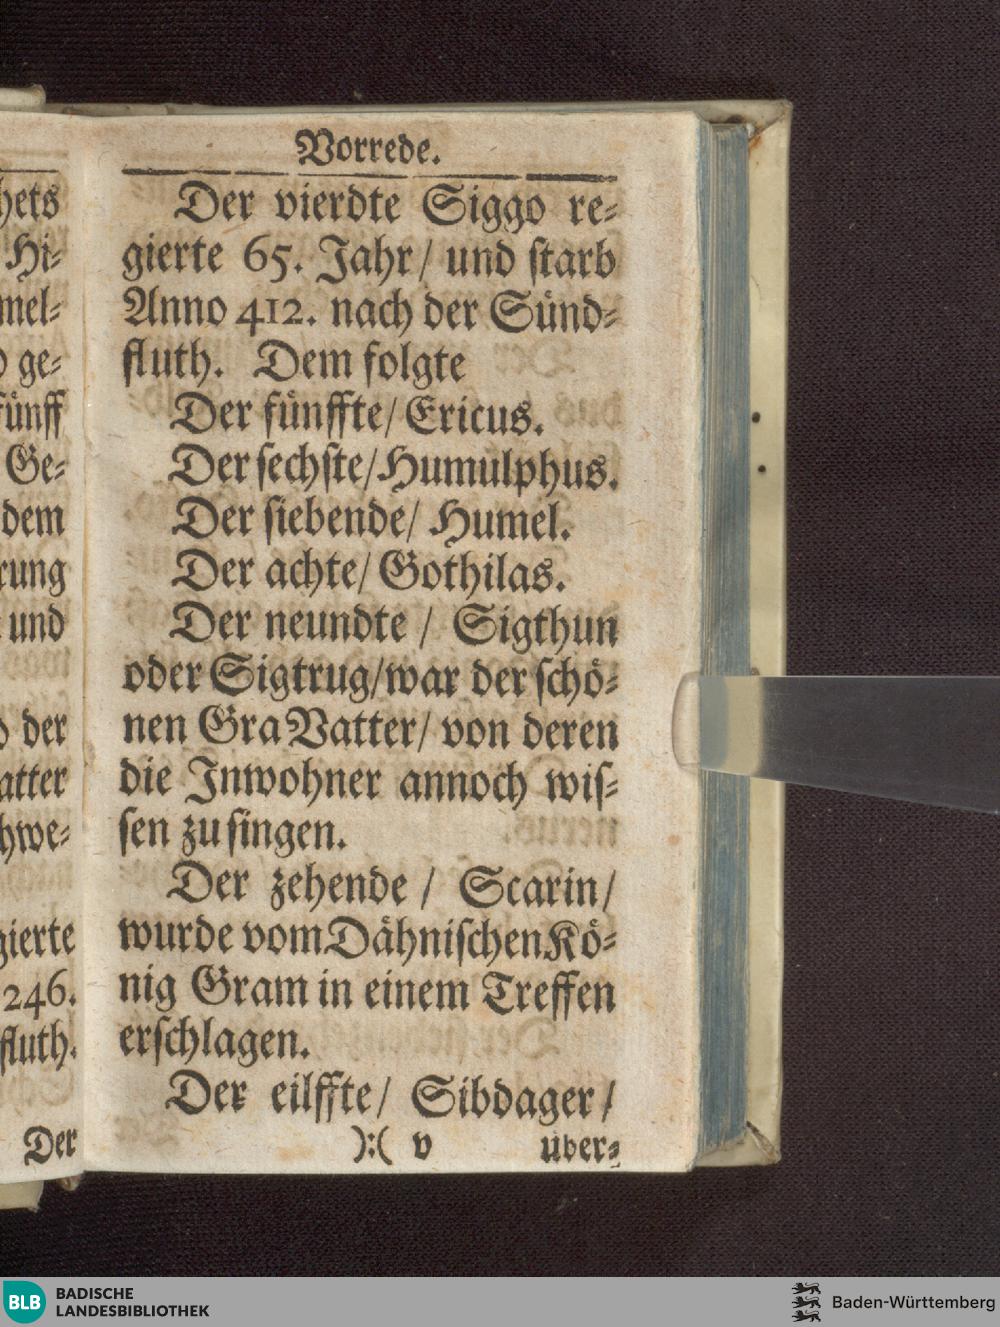 hets
Hi-
mel-
ge-
fünff
Ge-
dem
rung
und
der
atter
hwe-
gierte
246.
fluth.
Der
Vorrede.
Der vierdte Siggo re-
gierte 65. Jahr/ und ſtarb
Anno 412. nach der Sünd-
fluth. Dem folgte
Der fünffte/ Ericus.
Der ſechſte/ Humulphus.
Der ſiebende/ Humel.
Der achte/ Gothilas.
Der neundte / Sigthun
oder Sigtrug/ war der ſchö-
nen Gra Vatter/ von deren
die Inwohner annoch wiſ-
ſen zu ſingen.
Der zehende / Scarin/
wurde vom Dähniſchen Kö-
nig Gram in einem Treffen
erſchlagen.
Der eilffte/ Sibdager/
):( v über-
BLB BADISCHE
LANDESBIBLIOTHEK
Baden-Württemberg